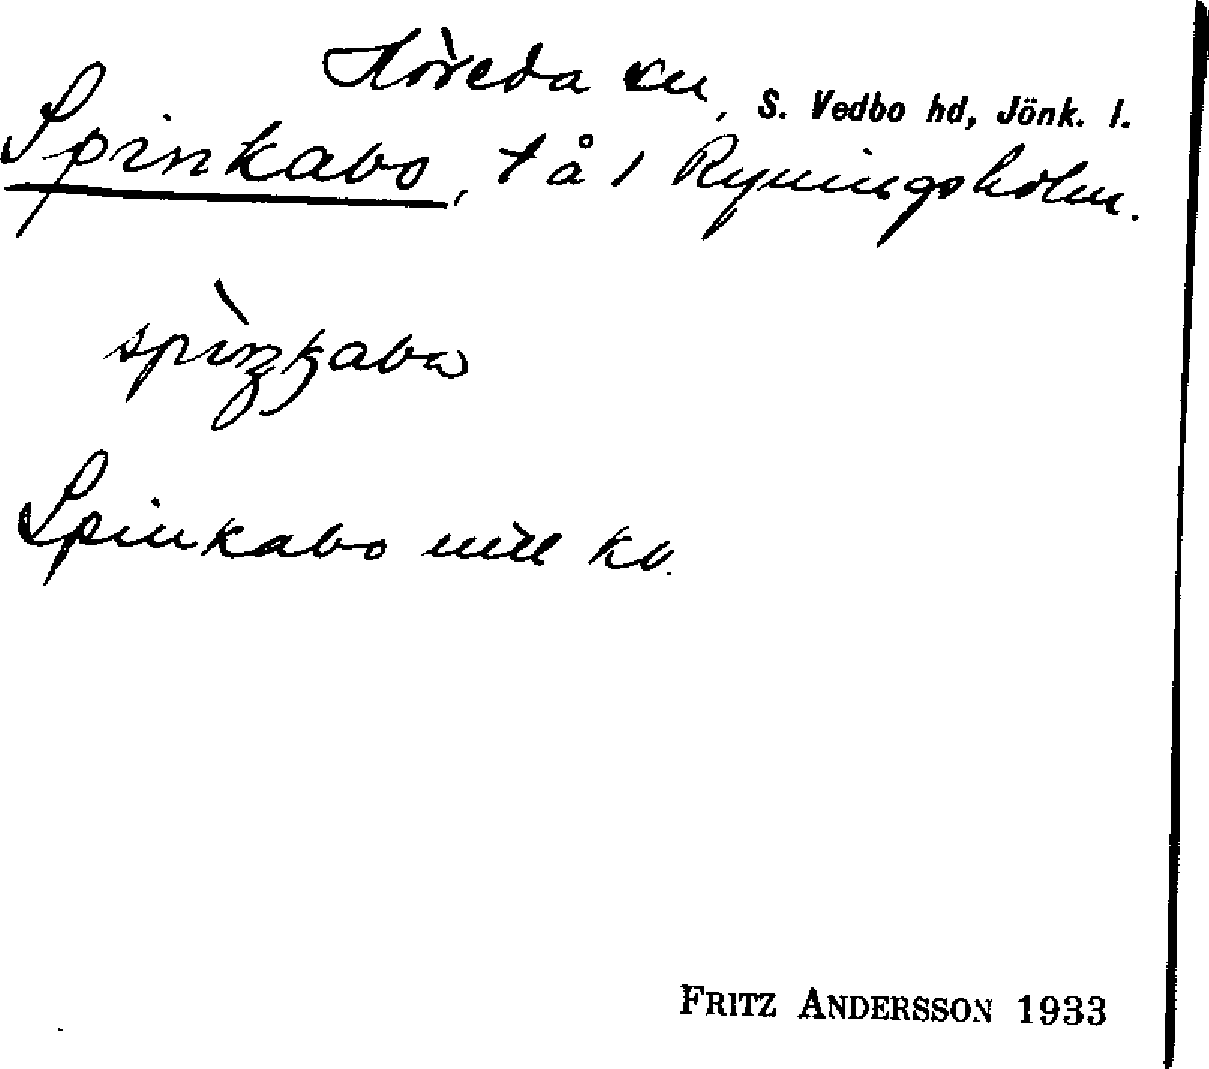 Höreda sn, S. Vedbo hd, Jönk. l.
Spinkabo, t å 1 Ryningsholm.
Spinkabo mtl kv.
FRITZ ANDERSSON 1933